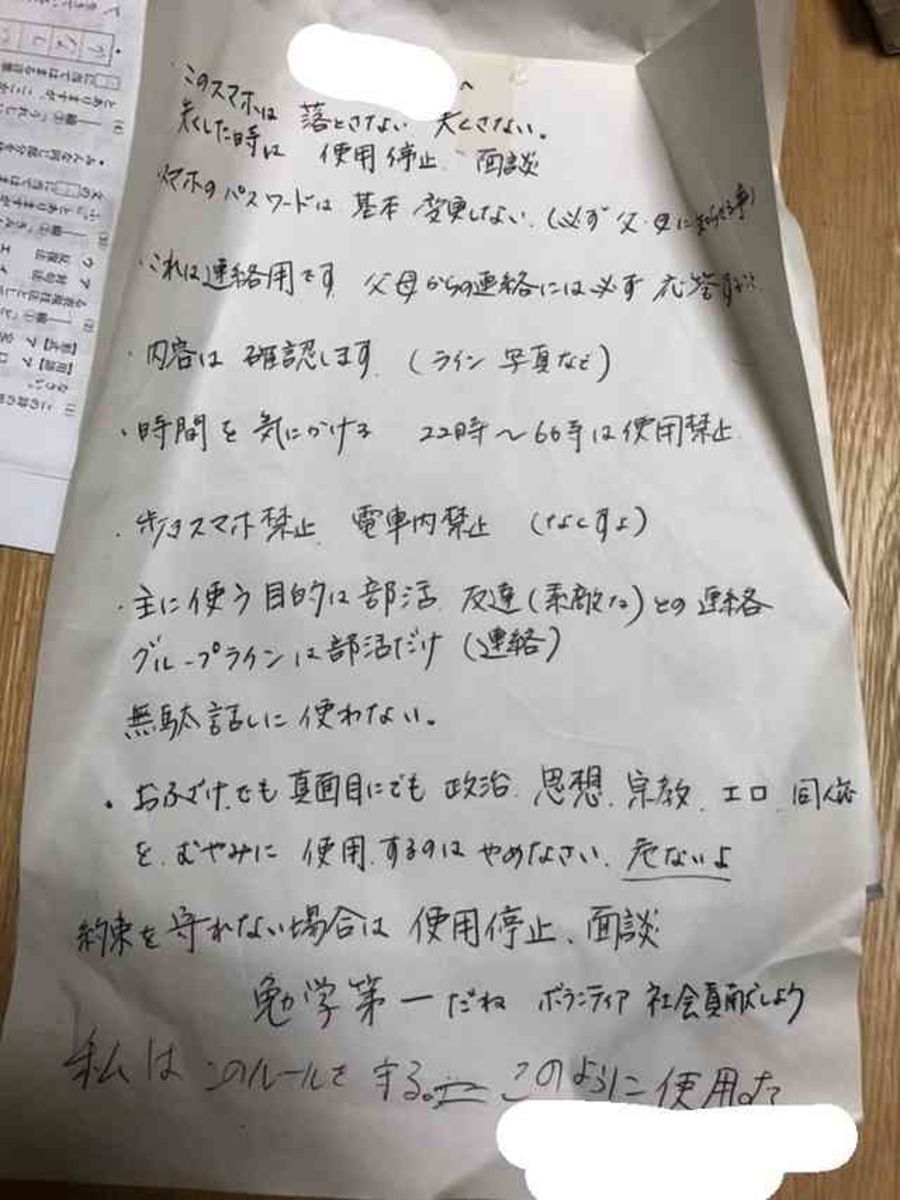 へ
このスマホは 落とさない 失くさない。
失くした時は 使用停止 面談
スマホのパスワードは 基本 変更しない。(必ず 父・母に知らせる事)
・これは連絡用です 父母からの連絡には必ず 応答する
・内容は 確認します (ライン 写真など)
・時間を 気にかける 22時〜6時は使用禁止
・歩きスマホ禁止 電車内禁止
・主に使う目的は部活 友達(素敵な)との連絡
グループラインは部活だけ (連絡)
無駄話しに使わない。
・おふざけでも 真面目にでも 政治、思想、宗教、エロ、
を、むやみに 使用するのは やめなさい、危ないよ
約束を守れない場合は 使用停止、面談
勉学第一だね ボランティア 社会貢献しよう
私は このルールを 守る。 このように使用